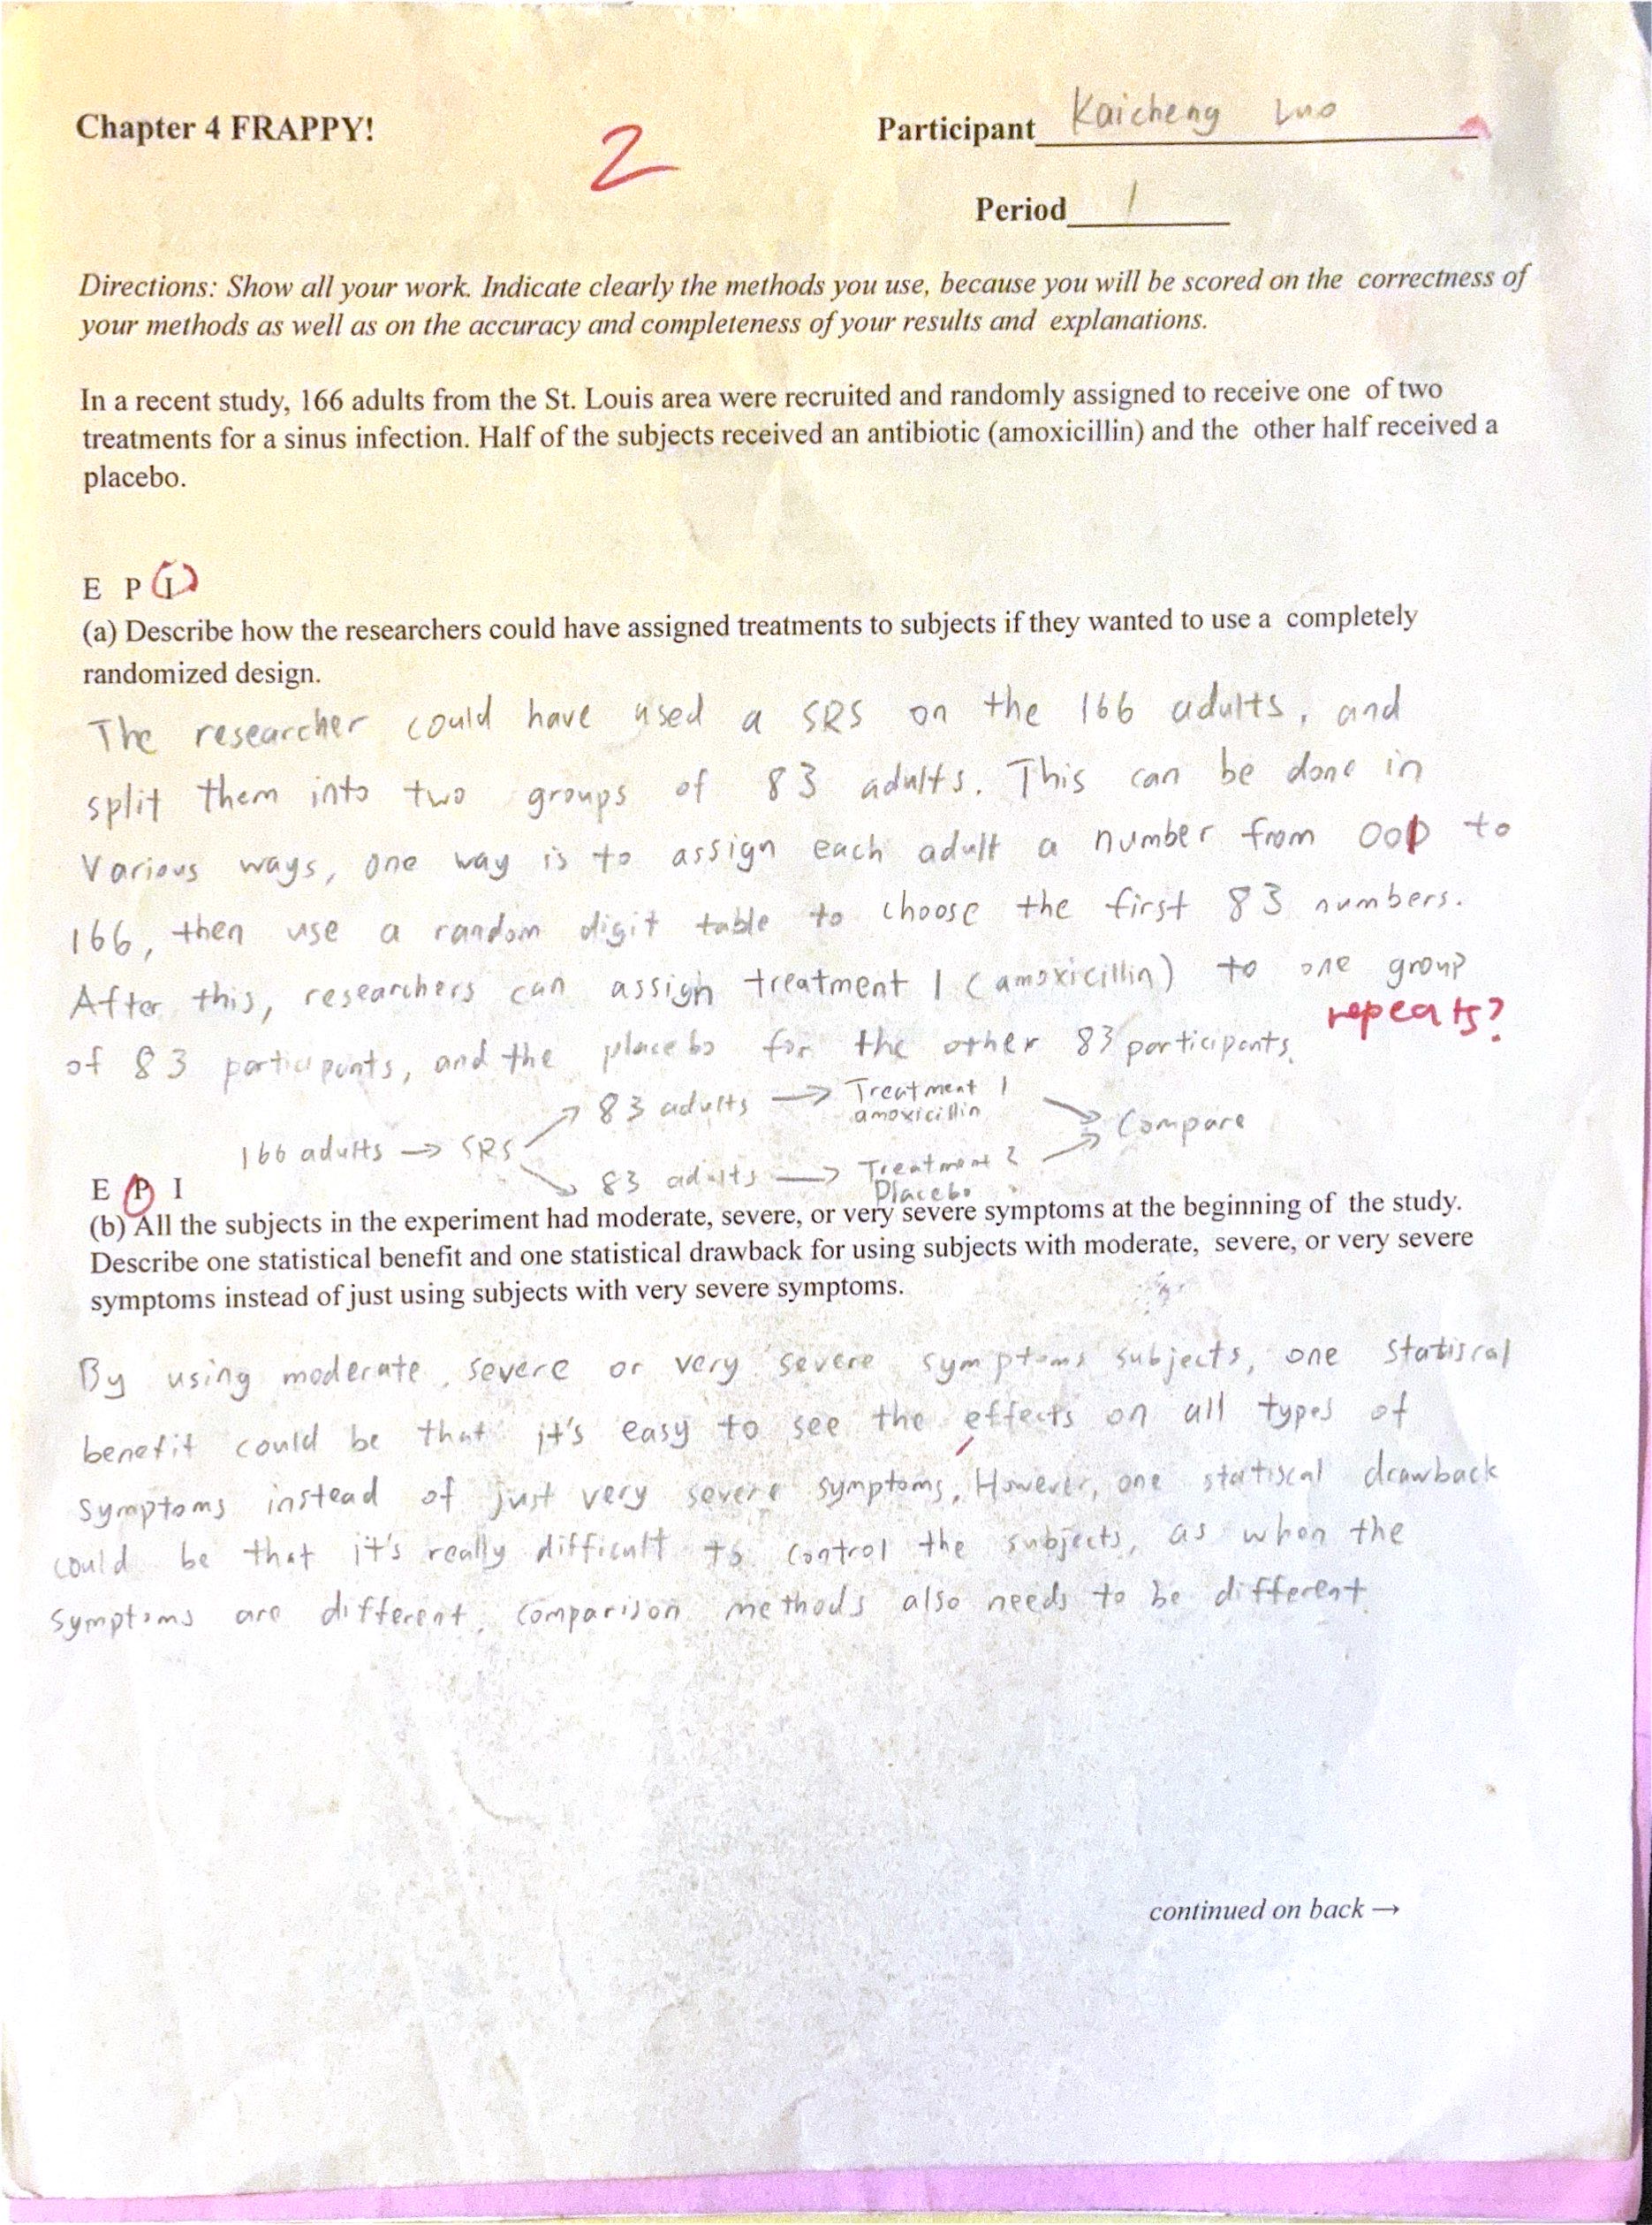 Chapter 4 FRAPPY!
2
Participant Kaicheng Luo
Period 1
Directions: Show all your work. Indicate clearly the methods you use, because you will be scored on the correctness of
your methods as well as on the accuracy and completeness of your results and explanations.
In a recent study, 166 adults from the St. Louis area were recruited and randomly assigned to receive one of two
treatments for a sinus infection. Half of the subjects received an antibiotic (amoxicillin) and the other half received a
placebo.
E P I
(a) Describe how the researchers could have assigned treatments to subjects if they wanted to use a completely
randomized design.
The researcher could have used a SRS on the 166 adults, and
split them into two groups of 83 adults. This can be done in
various ways, one way is to assign each adult a number from 001 to
166, then use a random digit table to choose the first 83 numbers.
After this, researchers can assign treatment 1 (amoxicillin) to one group
repeats?
of 83 participants, and the placebo for the other 83 participants.
83 adults → Treatment 1
amoxicillin
166 adults → SRS
Compare
83 adults → Treatment 2
Placebo
E P I
(b) All the subjects in the experiment had moderate, severe, or very severe symptoms at the beginning of the study.
Describe one statistical benefit and one statistical drawback for using subjects with moderate, severe, or very severe
symptoms instead of just using subjects with very severe symptoms.
By using moderate, severe or very severe symptoms subjects, one statiscal
benefit could be that it's easy to see the effects on all types of
symptoms instead of just very severe symptoms, However, one statiscal drawback
could be that it's really difficult to control the subjects, as when the
symptoms are different, comparison methods also needs to be different.
continued on back →